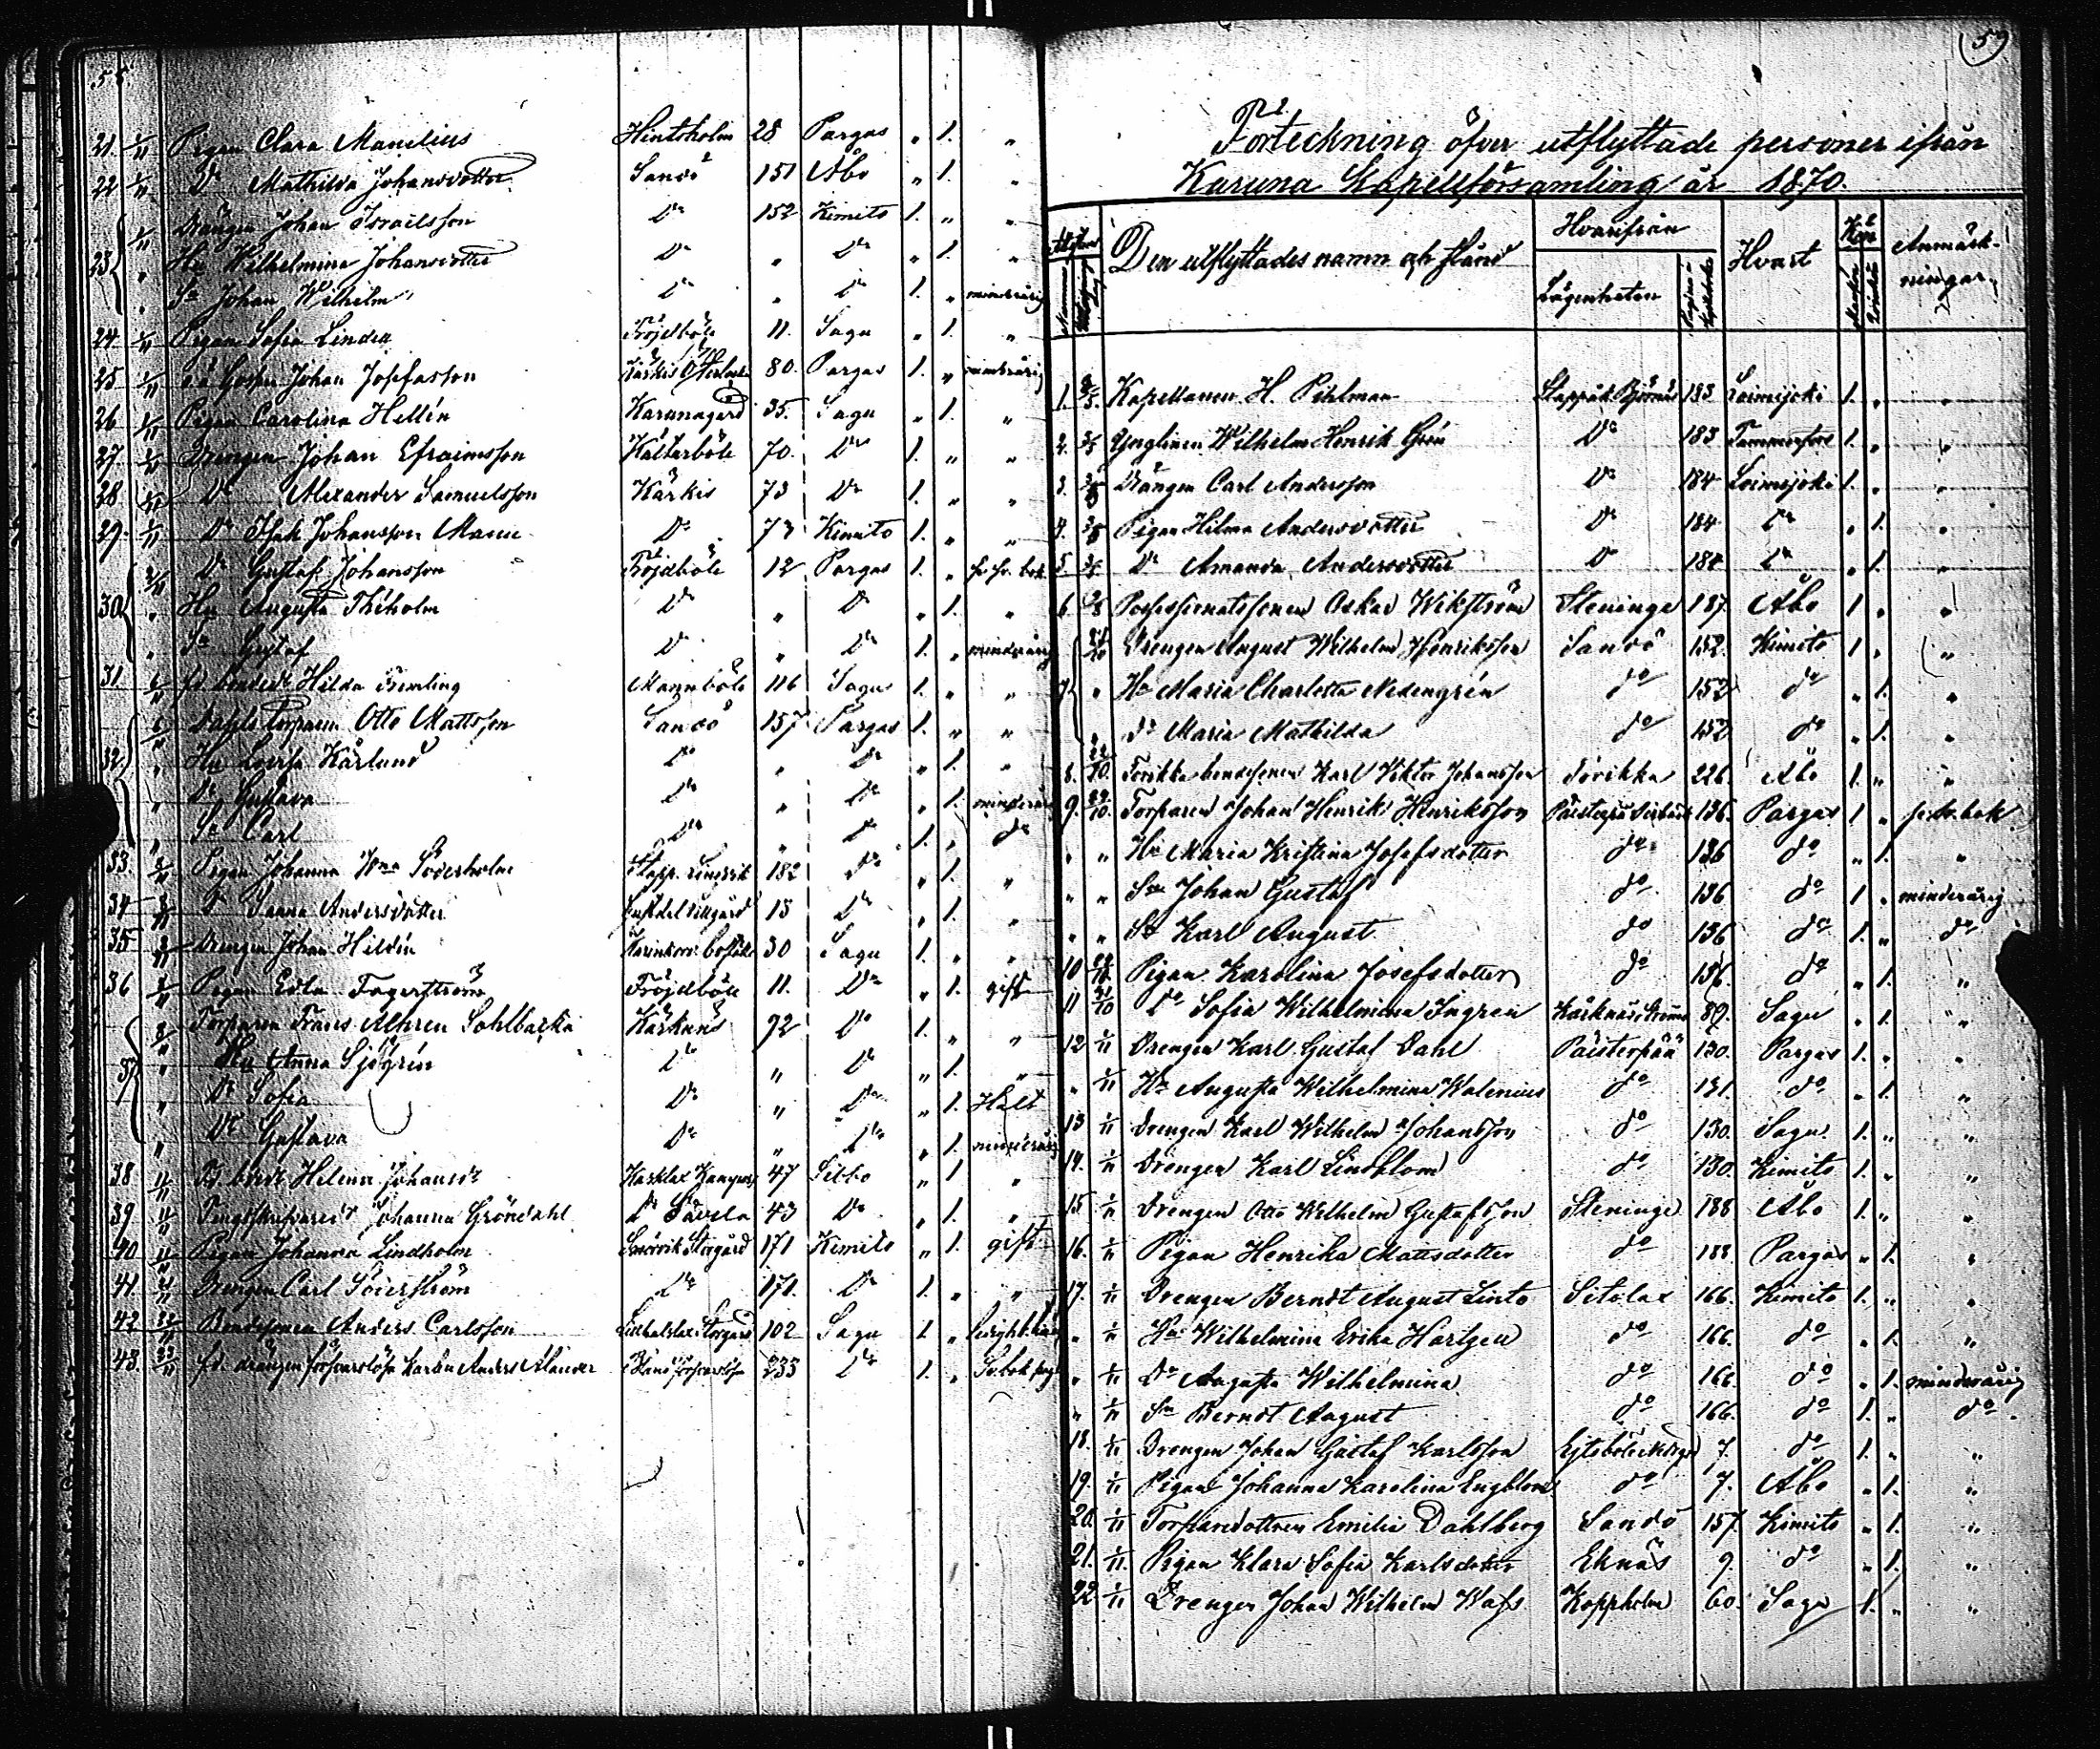 58
21. 1/11 Pigan Clara Manelius Hintsholm 28 Pargas „ 1. „
22 1/11 Do Mathilda Johansdotter Sandö 151 Åbo „ 1. „
23 1/11 Drängen Johan Israelsson Do 152 Kimito 1. „ „
„ Hu Wilhelmina Johansdotter Do „ Do „ 1. „
„ So Johan Wilhelm Do „ Do 1. „ minderårig
24. 1/11 Pigan Sofia Linden Fröjdböle 11. Sagu „ 1. „
25 1/11 Johan Josefsson Kärkis 80. Pargas 1. „ minderårig
26 1/11 Pigan Carolina Hellén Karunagård 35. Sagu „ 1. „
27. 1/11 Drengen Johan Efraimsson Kälterböle 70. Do 1. „ „
28 Do Alexander Samuelsson Kärkis 73 Do 1. „ „
29. 1/11 Do Isak Johansson Kimito 1. „ „
30 2/11 Do Gustaf Johansson Fröjdböle 12 Pargas 1. „
„ Hu Augusta Do „ Do „ 1. „
„ So Gustaf Do „ Do 1. „ minderårig
31. Hilda Mannböle 116 Sagu 1. „ „
32 Otto Mattsson Sandö 157 Pargas 1. „ „
„ Hu Lovisa Kärlund Do „ Do „ 1. „
„ Dr Gustava Do „ Do „ 1. minderårig
„ So Carl Do „ Do 1. „ do
33. Pigan Johanna Söderholm 182 Do „ 1. „
34 Do Sanna Andersdotter 15 Do „ 1. „
35 Drengen Johan Hildén 30 Sagu 1. „ „
36 Pigan Edla Fagerström Fröjdböle 11. Do „ 1. gift
37 Torparen Frans Sohlbacka Kärknäs 92 Do 1. „ „
„ Hu Anna Sjögrén Do „ Do „ 1. „
„ Dr Sofia Do „ Do „ 1.
„ Dr Gustava Do „ Do „ 1. minderårig
38 Helena Johansdr 47 Sibbo „ 1 „
39 Johanna Gröndahl Do 43 Do „ 1. „
40 Pigan Johanna Lindholm Storgård 171 Kimito „ 1. gift
41 Drengen Carl Söderström Do 171. Do 1. „ „
42 Bondsonen Anders Carlsson Storgård 102 Sagu 1 „
43. 23/11 fd. drängen Anders Ålander 233 Do 1. „
59
Förteckning öfver utflyttade personer ifrån
Karuna Kapellförsamling år 1870.
Den utflyttades namn och stånd Hvarifrån Hvart Kön Anmärk-
Lägenheten ningar.
1. Kapellanen H. Pihlman 183 Loimijoki 1. „ „
2. Ynglingen Wilhelm Henrik Grén Do 183 Tammerfors 1. „ „
3. Drängen Carl Andersson Do 184 Loimijoki 1. „ „
4. Pigan Hilma Andersdotter Do 184 Do „ 1. „
5 Do Amanda Andersdotter Do 184 Do „ 1. „
6 Possessionatssonen Oskar Wikström Steninge 187. Åbo 1 „ „
7 Drengen August Wilhelm Henriksson Sandö 152. Kimito 1 „ „
„ Hu Maria Charlotta do 152 do „ 1. „
„ Dr Maria Mathilda do 152 do „ 1. „
8. bondesonen Karl Viktor Johansson 226. Åbo 1. „ „
9. Torparen Johan Henrik Henriksson 136. Pargas 1 „
„ „ Hu Maria Kristina Josefsdotter do 136 do „ 1. „
„ „ Sn Johan Gustaf do 136 do 1 „ minderårig
„ „ Sn Karl August do 136 do 1. „ do
10 Pigan Karolina Josefsdotter do 136. do „ 1. „
11 Do Sofia Wilhelmina Ingren 89. Sagu „ 1. „
12 1/11 Drengen Karl Gustaf Dahl Päisterpää 130. Pargas 1. „ „
„ 1/11 Hu Augusta Wilhelmina Walenius do 131. do „ 1. „
13 1/11 Drengen Karl Wilhelm Johansson do 130. Sagu. 1. „ „
14. 1/11 Drengen Karl Lindblom do 130. Kimito 1. „ „
15 1/11 Drengen Otto Wilhelm Gustafsson Steninge 188 Åbo 1. „ „
16. 1/11 Pigan Henrika Mattsdotter do 188 Pargas „ 1. „
17. 1/11 Drengen Berndt August Linto Sitolax 166. Kimito 1. „ „
„ 1/11 Hu Wilhelmina Erika Hartgen do 166. do „ 1. „
„ 1/11 Dr Augusta Wilhelmina do 166. do „ 1. minderårig
„ 1/11 Sn Berndt August do 166. do 1. „ do.
18. 1/11 Drengen Johan Gustaf Karlsson 7. do 1. „ „
19. 1/11 Pigan Johanna Karolina Engblom do 7. Åbo „ 1. „
20. 1/11 Torparedottren Emilia Dahlberg Sandö 157. Kimito „ 1. „
21. 1/11. Pigan Klara Sofia Karlsdotter Eknäs 9. do „ 1. „
22 1/11 Drengen Johan Wilhelm Wass Koppholm 60. Sagu 1. „ „